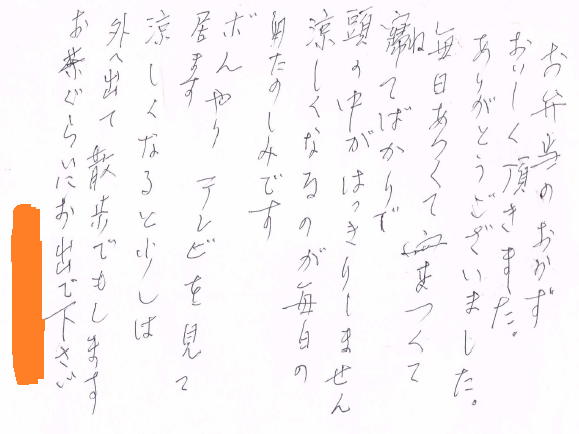 お弁当のおかず
おいしく頂きました。
ありがとうございました。
毎日あつくて あつくて
寝てばかりで
頭の中がはっきりしません
涼しくなるのが毎日の
たのしみです
ボんやり テレビを見て
居ます
涼しくなると少しは
外へ出て散歩でもします
お茶ぐらいにお出で下さい